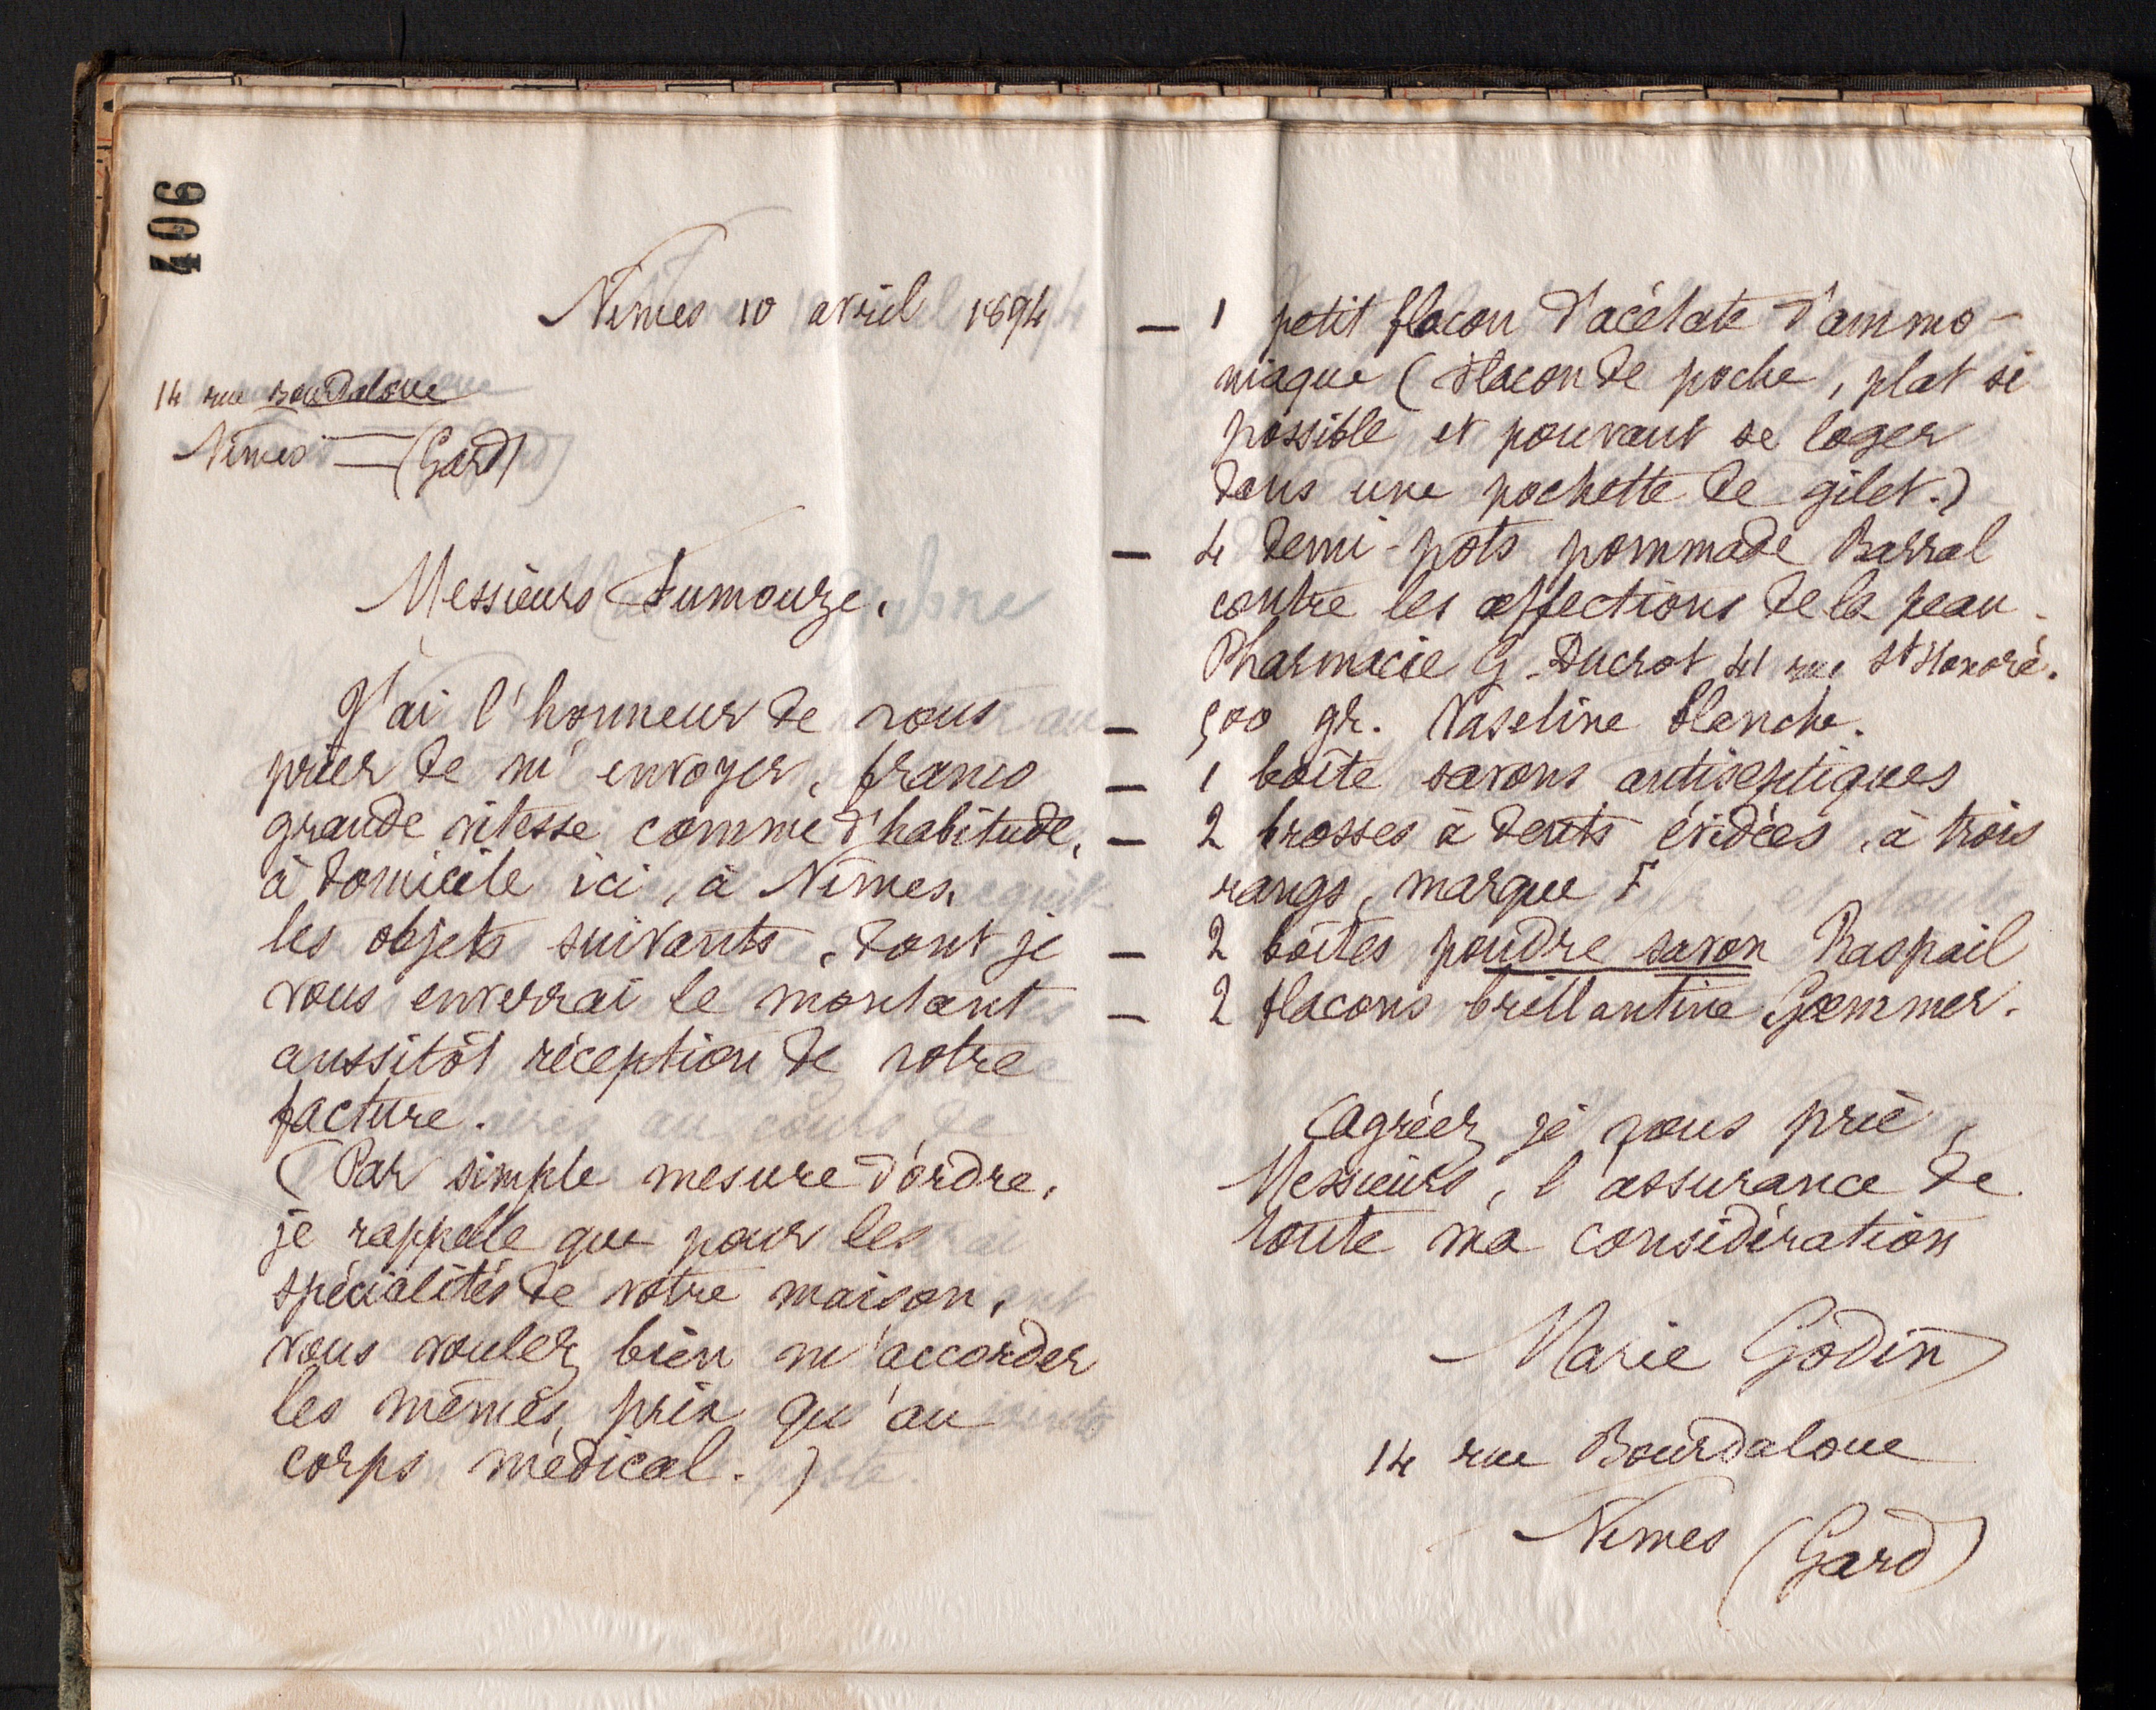 406
Nîmes 10 avril 1894
14 rue Bourdaloue
Nîmes — (Gard)
Messieurs Fumouze,
J'ai l'honneur de vous
prier de m'envoyer, franco
grande vitesse comme d'habitude,
à domicile ici, à Nîmes,
les objets suivants, dont je
vous enverrai le montant
aussitôt réception de votre
facture.
(Par simple mesure d'ordre,
je rappelle que pour les
spécialités de votre maison,
vous voulez bien m'accorder
les mêmes prix qu'au
corps médical.)
— 1 petit flacon d'acétate d'ammo-
niaque (flacon de poche, plat si
possible et pouvant se loger
dans une pochette de gilet.)
— 4 demi-pots pommade Barral
contre les affections de la peau.
Pharmacie G. Ducrot 41 rue St Honoré.
— 500 gr. Vaseline blanche.
— 1 boîte savons antiseptiques
— 2 brosses à dents évidées, à trois
rangs, marque F
— 2 boîtes poudre savon Raspail
— 2 flacons brillantine Gemmer.
Agréez je vous prie,
Messieurs, l'assurance de
toute ma considération
Marie Godin
14 rue Bourdaloue
Nîmes (Gard)